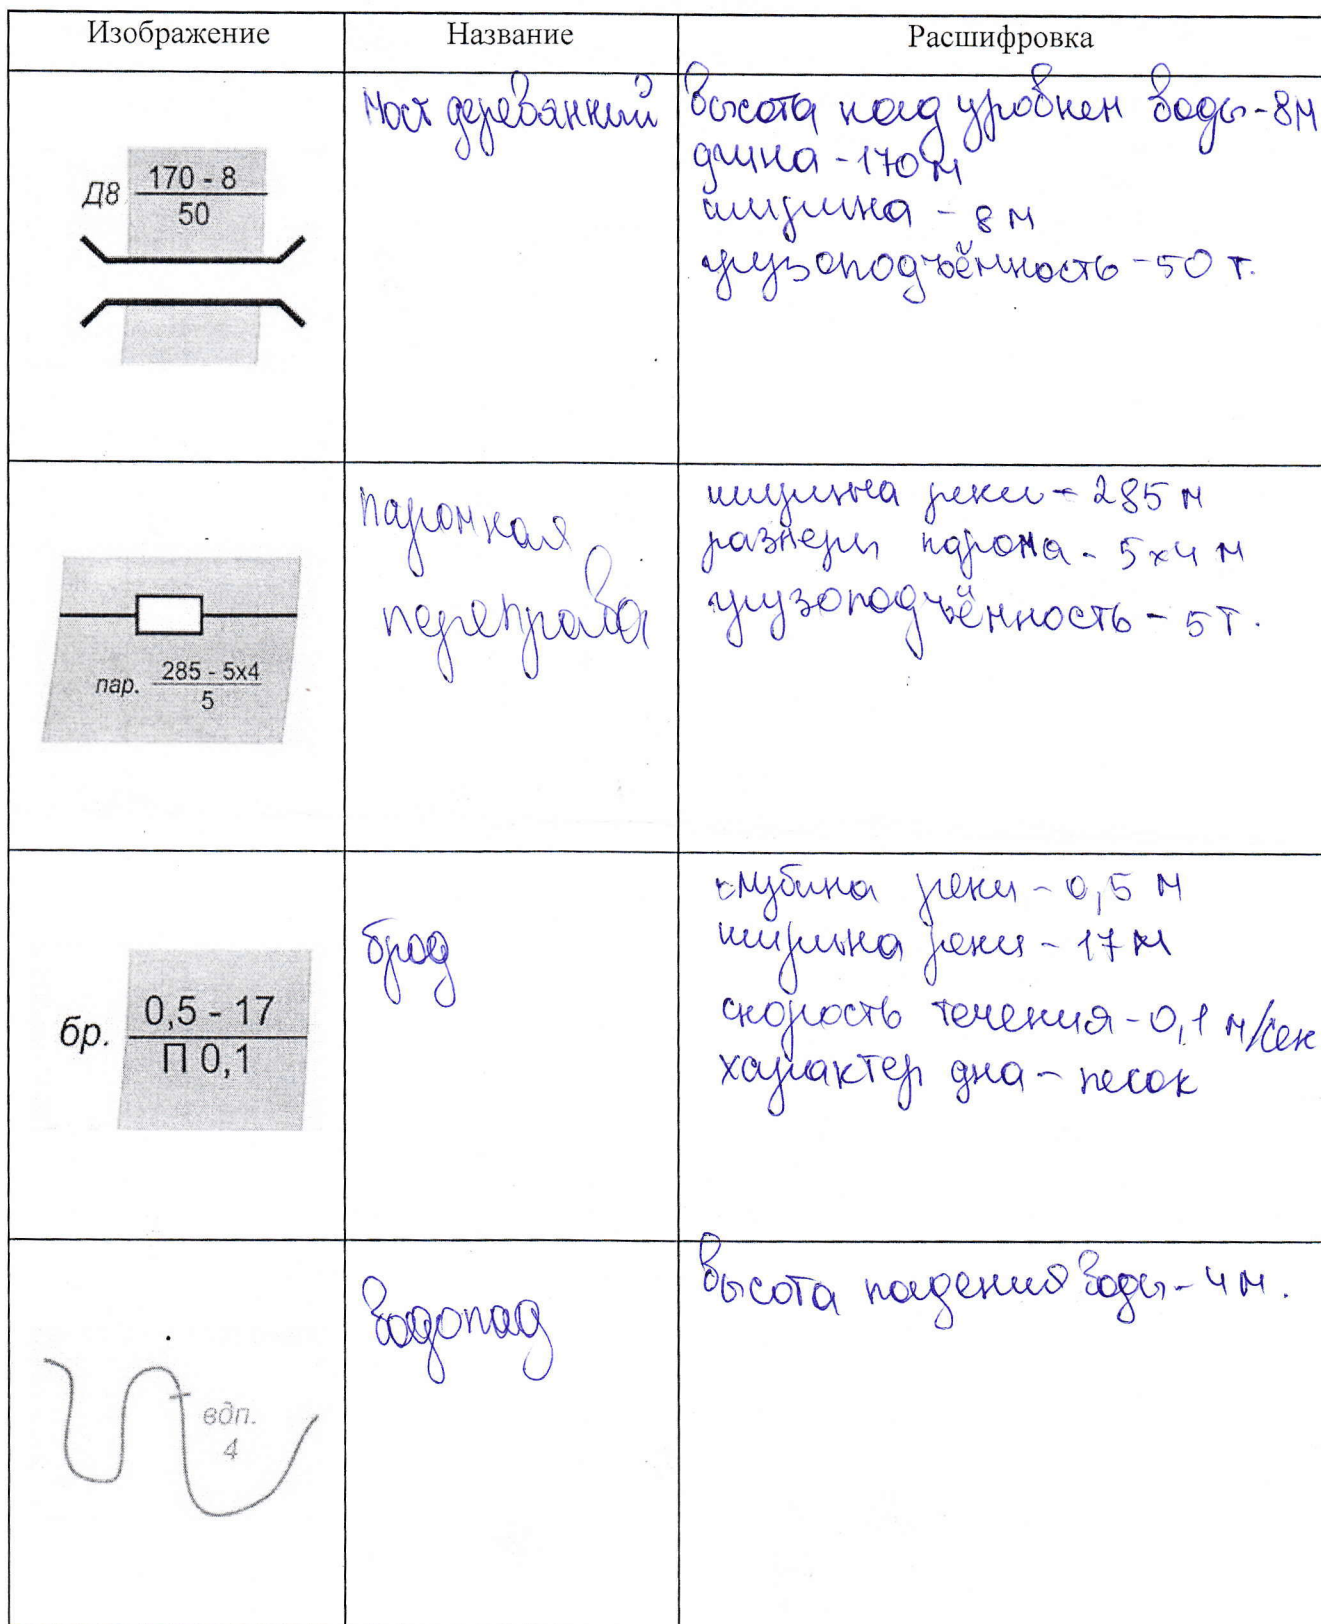 Изображение Название Расшифровка
Д8 170 - 8
50
мост деревянный
высота над уровнем воды - 8 м
длина - 170 м
ширина - 8 м
грузоподъёмность - 50 т.
пар. 285 - 5х4
5
паромная
переправа
ширина реки - 285 м
размеры парома - 5х4 м
грузоподъёмность - 5 т.
бр. 0,5 - 17
П 0,1
брод
глубина реки - 0,5 м
ширина реки - 17 м
скорость течения - 0,1 м/сек
характер дна - песок
вдп.
4
водопад
высота падения воды - 4 м.